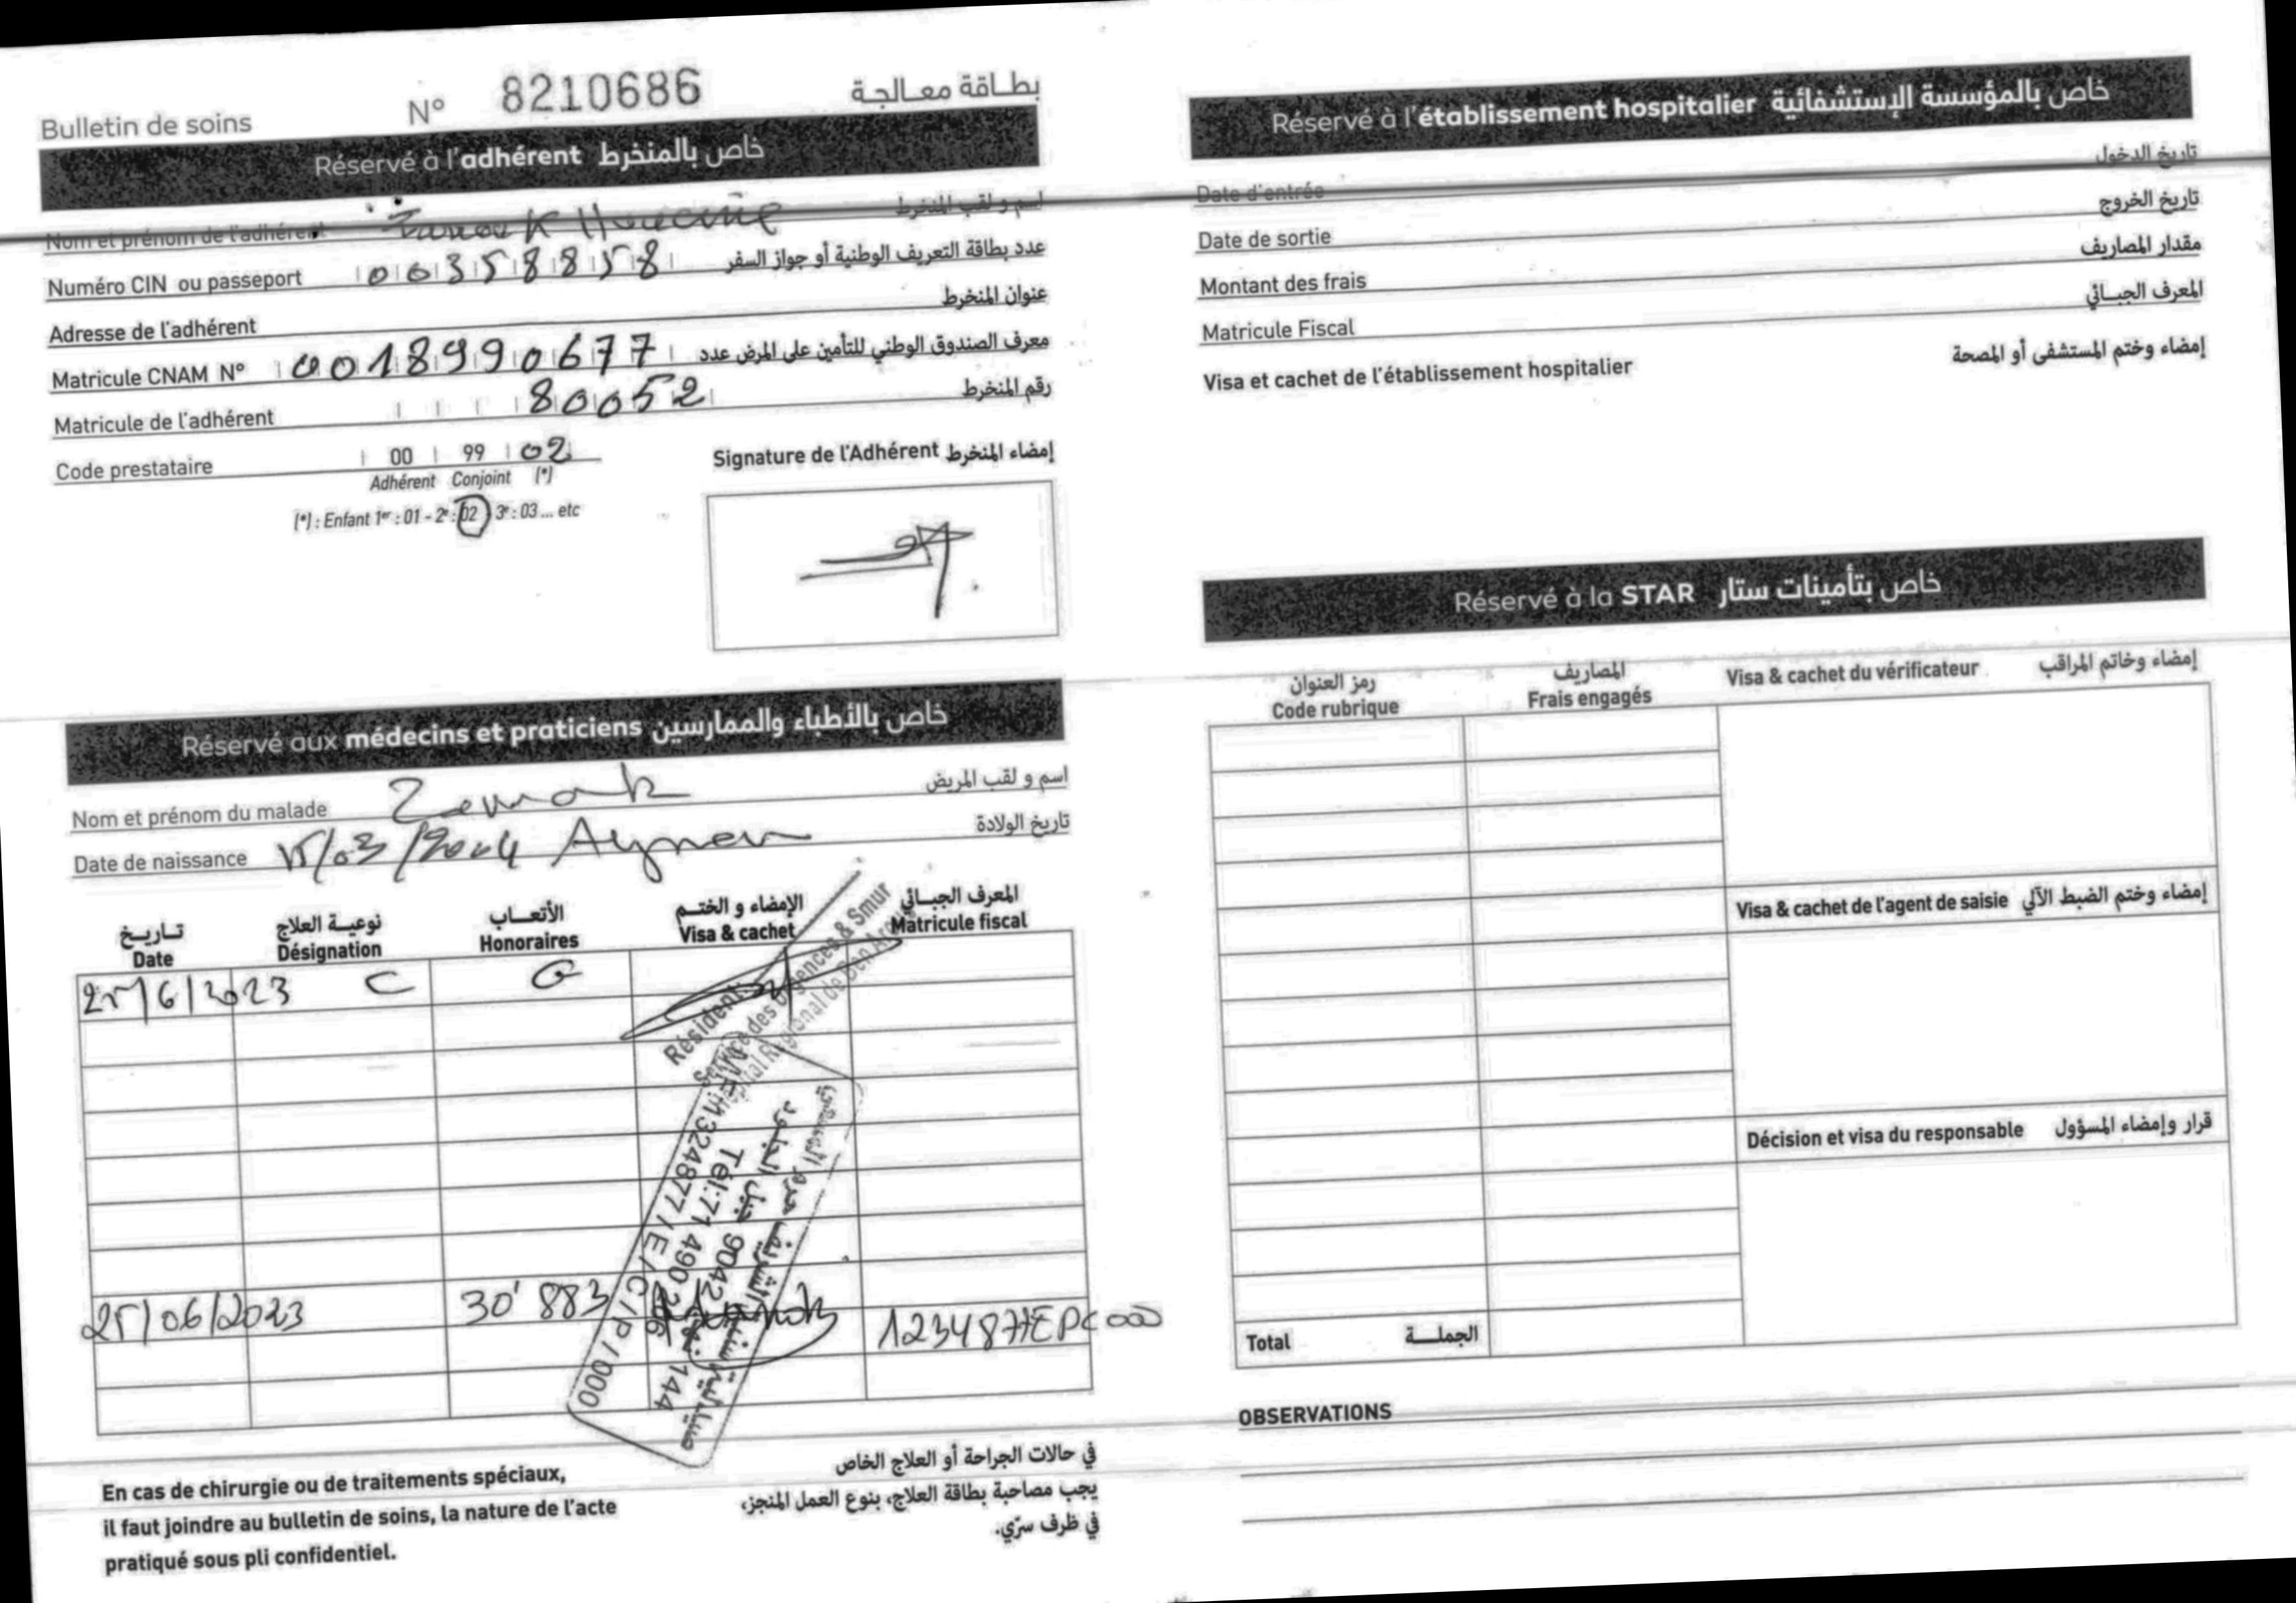 Bulletin de soins N° 8210686 بطاقة معالجة
Réservé à l'adhérent خاص بالمنخرط
Nom et prénom de l'adhérent اسم و لقب المنخرط
Numéro CIN ou passeport 00358858 عدد بطاقة التعريف الوطنية أو جواز السفر
Adresse de l'adhérent عنوان المنخرط
Matricule CNAM N° 0018990677 معرف الصندوق الوطني للتأمين على المرض عدد
Matricule de l'adhérent 80052 رقم المنخرط
Code prestataire 00 99 02
Adhérent Conjoint (*)
(*) : Enfant 1er : 01 - 2e : 02 3e : 03 ... etc
Signature de l'Adhérent إمضاء المنخرط
Réservé aux médecins et praticiens خاص بالأطباء والممارسين
Nom et prénom du malade Zemak اسم و لقب المريض
Date de naissance 15/03/2004 Aymen تاريخ الولادة
تاريخ نوعية العلاج الأتعاب الإمضاء و الختم المعرف الجبائي
Date Désignation Honoraires Visa & cachet Matricule fiscal
25/6/2023 C G
Résident
Service des Urgences & Smur
Tél:71 490 266
25/06/2023 30' 883
En cas de chirurgie ou de traitements spéciaux,
il faut joindre au bulletin de soins, la nature de l'acte
pratiqué sous pli confidentiel.
في حالات الجراحة أو العلاج الخاص
يجب مصاحبة بطاقة العلاج، بنوع العمل المنجز،
في ظرف سرّي.
Réservé à l'établissement hospitalier خاص بالمؤسسة الإستشفائية
Date d'entrée تاريخ الدخول
Date de sortie تاريخ الخروج
Montant des frais مقدار المصاريف
Matricule Fiscal المعرف الجبائي
Visa et cachet de l'établissement hospitalier إمضاء وختم المستشفى أو المصحة
Réservé à la STAR خاص بتأمينات ستار
رمز العنوان المصاريف
Code rubrique Frais engagés
Visa & cachet du vérificateur إمضاء وخاتم المراقب
Visa & cachet de l'agent de saisie إمضاء وختم الضبط الآلي
Décision et visa du responsable قرار وإمضاء المسؤول
Total الجملة
OBSERVATIONS